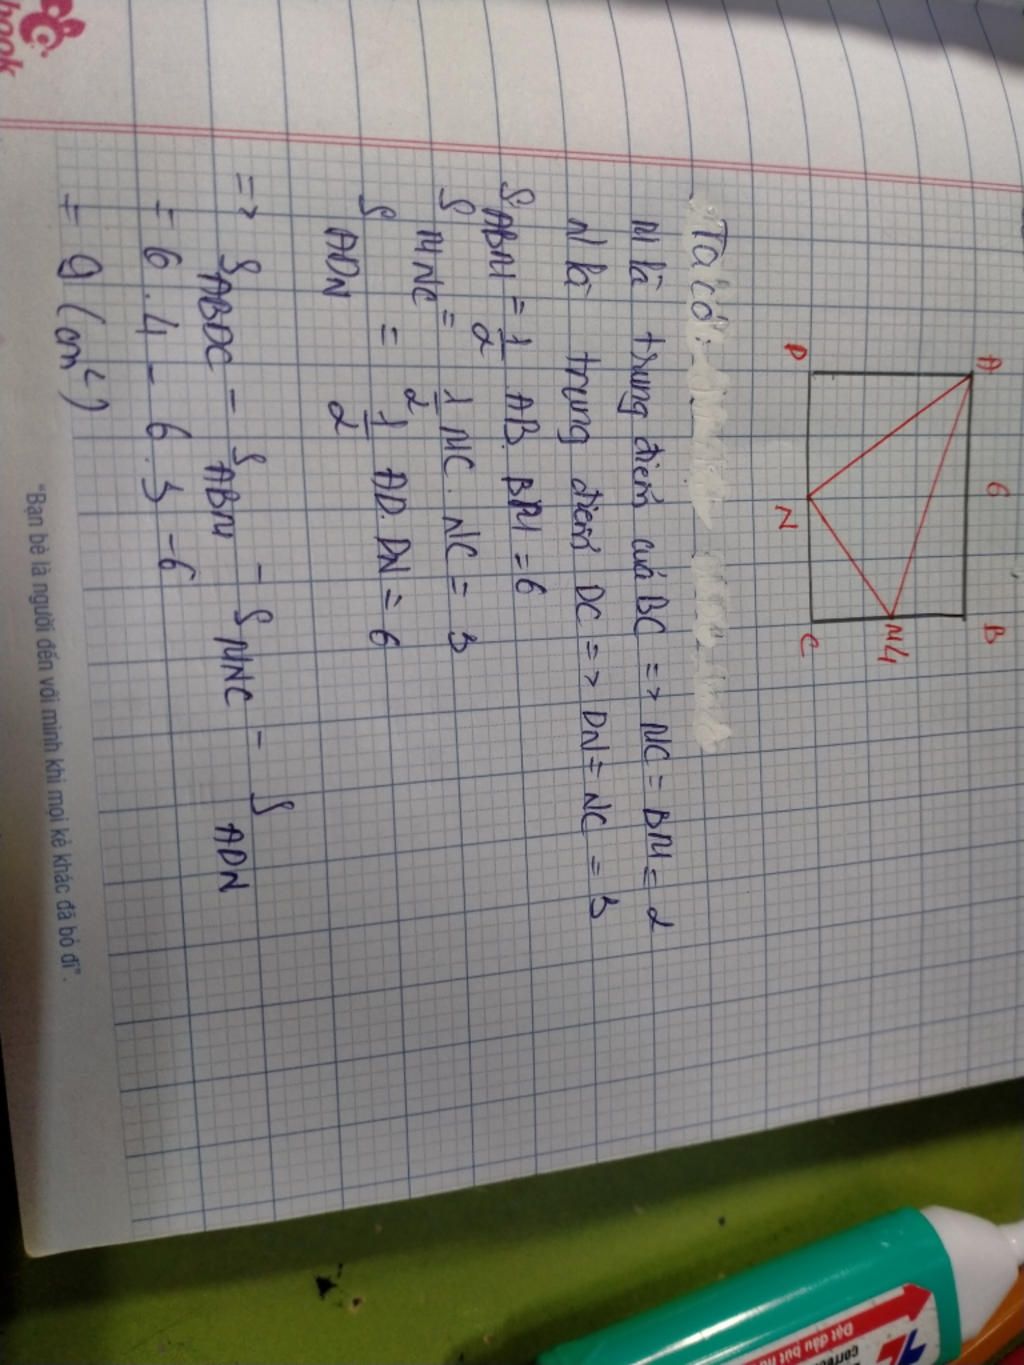 A 6 B
M 4
D N C
Ta có:
M là trung điểm của BC => MC = BM = 2
N là trung điểm DC => DN = NC = 3
S ABM = 1/2 AB. BM = 6
S MNC = 1/2 MC. NC = 3
S ADN = 1/2 AD. DN = 6
=> S ABDC - S ABM - S MNC - S ADN
= 6.4 - 6.3 - 6
= 9 (cm²)
"Bạn bè là người đến với mình khi mọi kẻ khác đã bỏ đi".
book
Đặt đầu bút